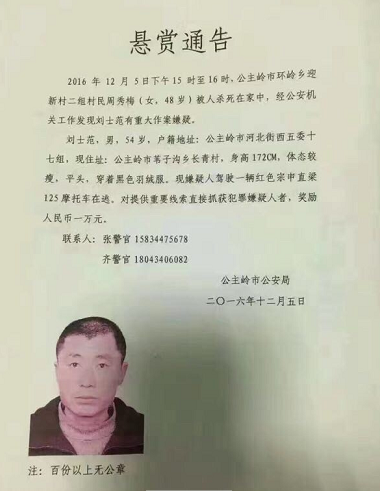 悬赏通告
2016 年 12 月 5 日下午 15 时至 16 时，公主岭市环岭乡迎
新村二组村民周秀梅（女，48 岁）被人杀死在家中，经公安机
关工作发现刘士范有重大作案嫌疑。
刘士范，男，54 岁，户籍地址：公主岭市河北街西五委十
七组，现住址：公主岭市苇子沟乡长青村，身高 172CM，体态较
瘦，平头，穿着黑色羽绒服。现嫌疑人驾驶一辆红色宗申直梁
125 摩托车在逃。对提供重要线索直接抓获犯罪嫌疑人者，奖励
人民币一万元。
联系人：张警官 15834475678
齐警官 18043406082
公主岭市公安局
二〇一六年十二月五日
注：百份以上无公章